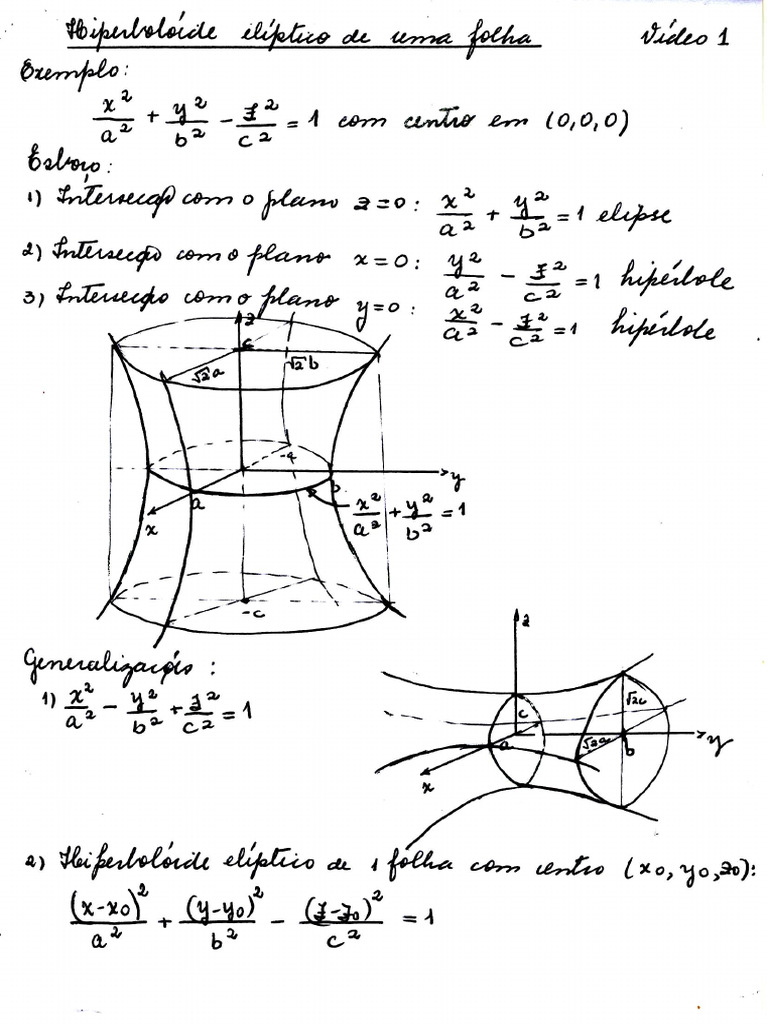 Hiperbolóide elíptico de uma folha Vídeo 1
Exemplo:
x²/a² + y²/b² - z²/c² = 1 com centro em (0,0,0)
Esboço:
1) Intersecção com o plano z=0: x²/a² + y²/b² = 1 elipse
2) Intersecção com o plano x=0: y²/a² - z²/c² = 1 hipérbole
3) Intersecção com o plano y=0: x²/a² - z²/c² = 1 hipérbole
z
c
√2a √2b
-a
y
a b
x
x²/a² + y²/b² = 1
-c
Generalizações:
1) x²/a² - y²/b² + z²/c² = 1
z
√2c
c
a √2a b y
x
2) Hiperbolóide elíptico de 1 folha com centro (x0, y0, z0):
(x-x0)²/a² + (y-y0)²/b² - (z-z0)²/c² = 1